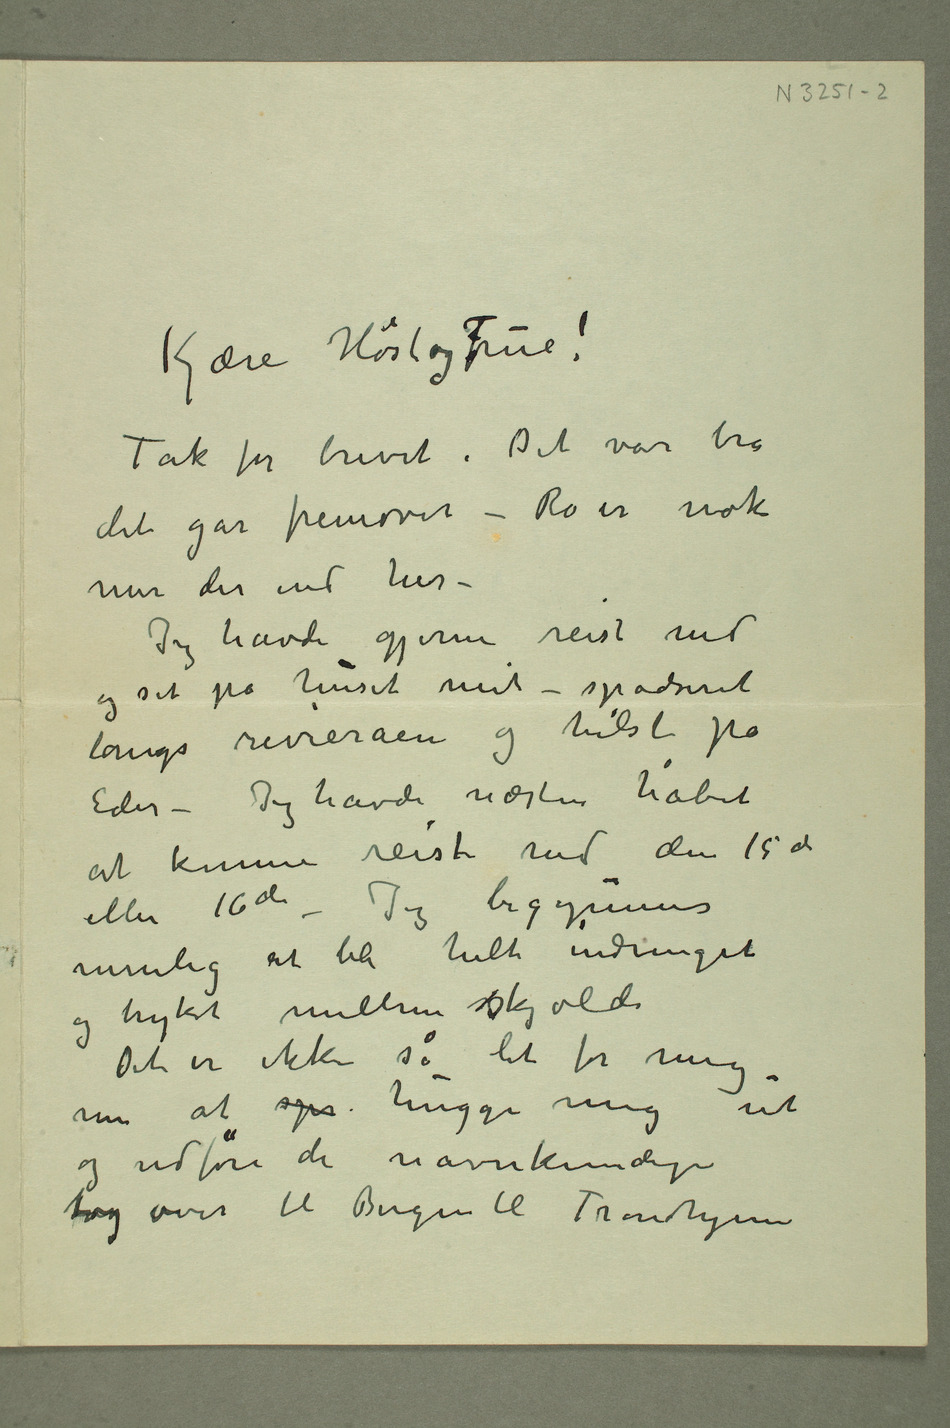 N 3251-2
Kjære Höst og Frue!
Tak for brevet. Det var bra
det går fremover – Ro er nok
mer der end her –
Jeg havde gjerne reist ned
og set på huset mit – spadseret
langs revieraen og hilst på
Eder – Jeg havde næsten håbet
at kunne reist ned den 15de
eller 16de – Jeg begynner
nemlig at bli helt indringet
og trykt mellem skjolde
Det er ikke så let for meg
nu at spr. hugge meg ut
og udföre de navnkundige
tog over til Bergen til Trondhjem